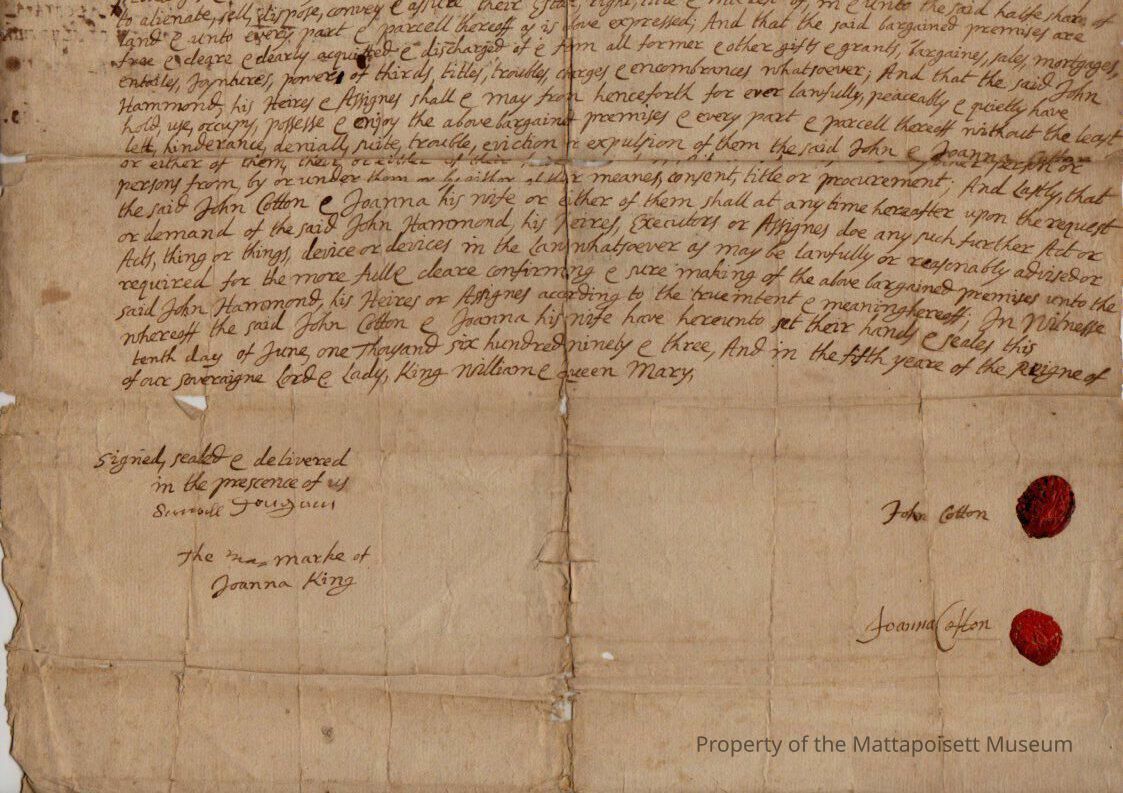 to alienate, sell, dispose, convey & assure their Estate, right, title & interest of, in & unto the said halfe share of
land & unto every part & parcell thereoff as is above expressed; And that the said bargained premises are
free & cleare & clearly acquitted & discharged of & from all former & other gifts & grants, bargaines, sales, mortgages,
entailes, Joyntures, powers of thirds, titles, troubles, charges & encombrances whatsoever; And that the said John
Hammond, his Heires & Assignes shall & may from henceforth for ever lawfully, peaceably & quietly have
hold, use, occupy, possesse & enjoy the above bargaind premises & every part & parcell thereoff without the least
lett, hinderance, deniall, suite, trouble, eviction or expulsion of them the said John & Joanna Cotton
or either of them, their or either of their person or
persons from, by or under them or by either of their meanes, consent, title or procurement; And Lastly, that
the said John Cotton & Joanna his wife or either of them shall at any time hereafter upon the request
or demand of the said John Hammond, his Heires, Executors or Assignes doe any such further Act or
Acts, thing or things, device or devices in the Law whatsoever as may be lawfully or reasonably advised or
required for the more full & cleare confirming & sure making of the above bargained premises unto the
said John Hammond, his Heires or Assignes according to the true intent & meaning hereoff; In Witnesse
whereoff the said John Cotton & Joanna his wife have hereunto set their hands & seales this
tenth day of June, one Thousand six hundred ninety & three, And in the fifth yeare of the Reigne of
of our soveraigne Lord & Lady, King William & queen Mary,
Signed, sealed & delivered
in the prescence of us
John Cotton
The marke of
Joanna King
Joanna Cotton
Property of the Mattapoisett Museum